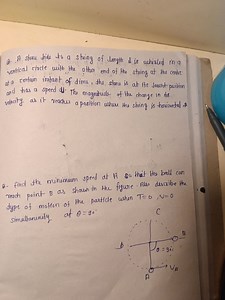 Q. A stone tied to a string of length L is whirled in a
vertical circle with the other end of the string at the centre
at a certain instant of time, the stone is at its lowest position
and has a speed u. The magnitude of the change in its
velocity as it reaches a position where the string is horizontal is
Q. Find the minimum speed at A so that the ball can
reach point B as shown in the figure. Also describe the
type of motion of the particle when T=0, V=0
simultaneously at θ=90°
C
D
B
θ=90°
A
V_A